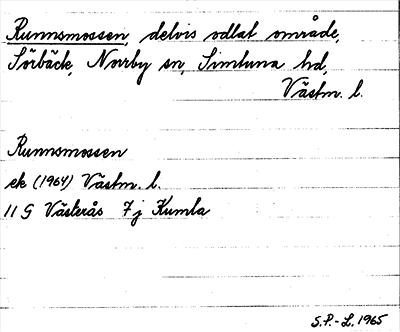 Runnsmossen, delvis odlat område,
Sörbäck, Norrby sn, Simtuna hd,
Västm. l.
Runnsmossen
ek (1964) Västm. l.
11 G Västerås 7 j Kumla
S.P.-L. 1965